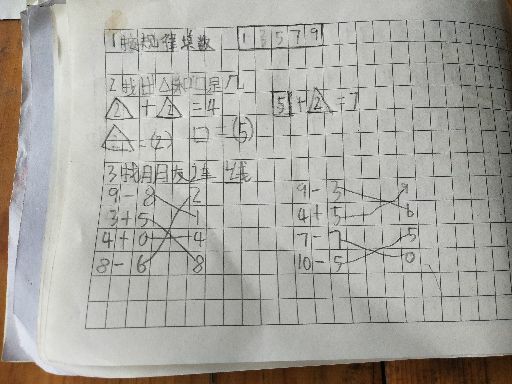 1按规律填数 1 3 5 7 9
2找出△和□是几
△2 + △2 = 4 □5 + △2 = 7
△ = (2) □ = (5)
3找朋友 连线
9 - 8 2 9 - 3 9
3 + 5 1 4 + 5 6
4 + 0 4 7 - 7 5
8 - 6 8 10 - 5 0